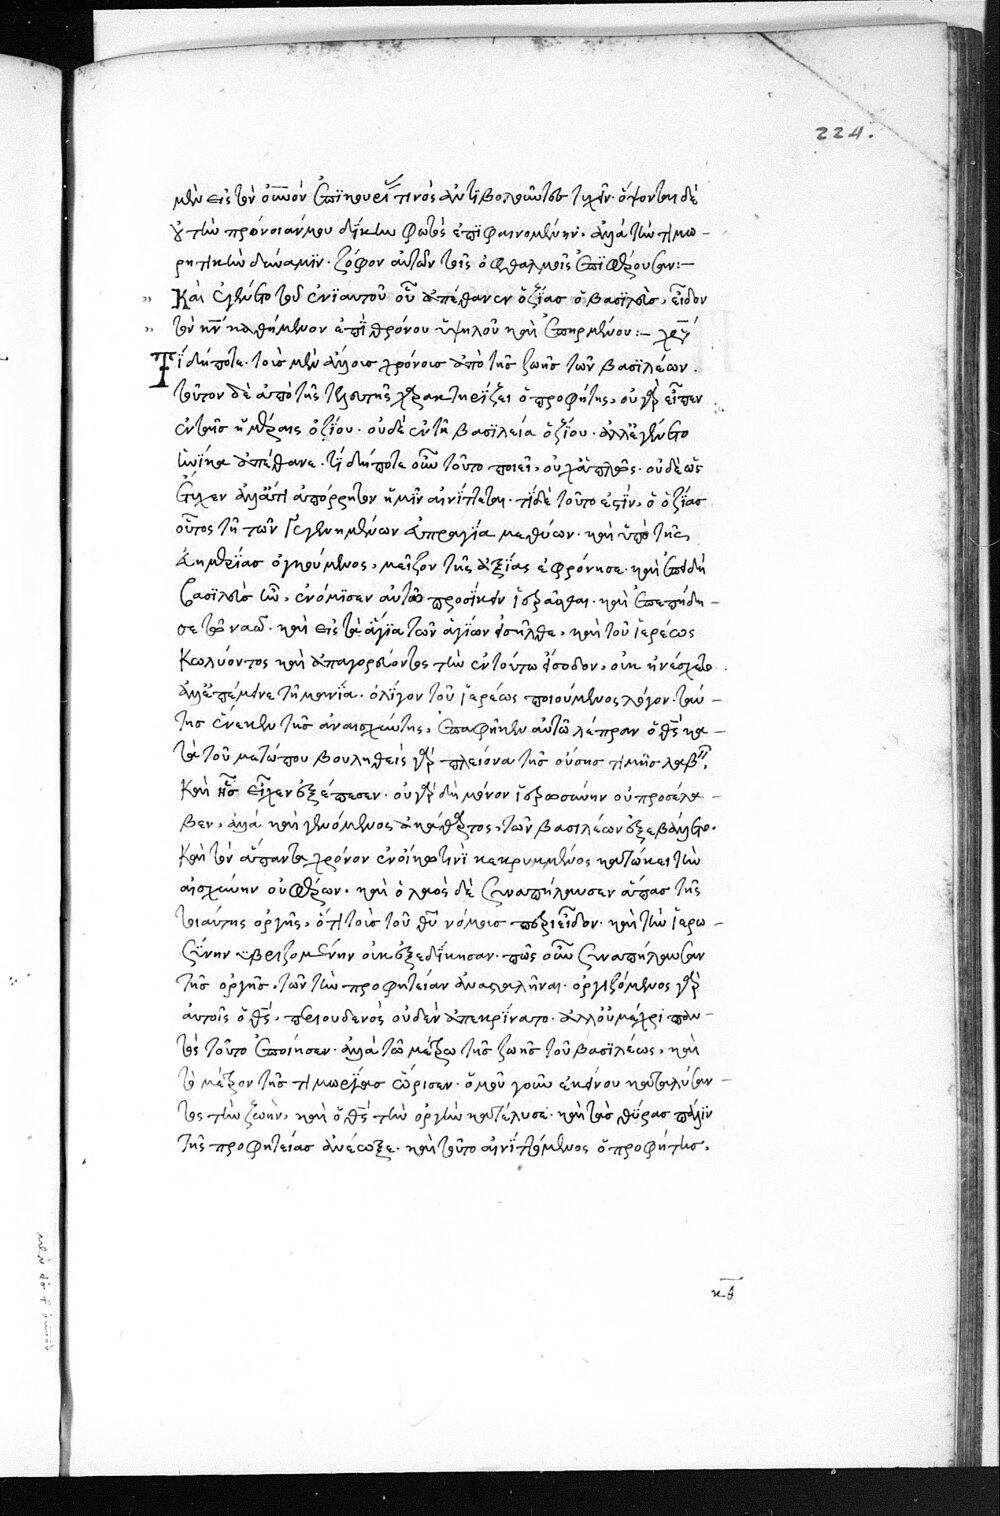 224.
μὲν εἰς τὸν οὐνὸν ἐπικουρί τινὸς ἀντιβολοῦντες τυχεῖν· ὄψονται δὲ
οὐ τὴν πρόνοιάν μου δίκην φωτὸς ἐπιφαινομένην· ἀλλὰ τὴν τιμω-
ρητικὴν δύναμιν· ζόφον αὐτῶν τοῖς ὀφθαλμοῖς ἐπιφέρουσαν:-
Καὶ ἐγένετο τοῦ ἐνιαυτοῦ οὗ ἀπέθανεν ὀζίας ὁ βασιλεὺς, εἶδον
τὸν κν καθήμενον ἐπὶ θρόνου ὑψηλοῦ καὶ ἐπηρμένου:-
Τί δήποτε· τοῖς μὲν ἄλλοις χρόνοις ἀπὸ τῆς ζωῆς τῶν βασιλέων·
τοῦτον δὲ ἀπὸ τῆς τελευτῆς χαρακτηρίζει ὁ προφήτης, οὐ γὰρ εἶπεν
ἐν ταῖς ἡμέραις ὀζίου· οὐδὲ ἐν τῇ βασιλεία ὀζίου· ἀλλ' ἐγένετο
ἡνίκα ἀπέθανε· τί δήποτε οὖν τοῦτο ποιεῖ, οὐχ ἁπλῶς· οὐδὲ ὡς
ἔτυχεν ἀλλά τι ἀπόρρητον ἡμῖν αἰνίττεται· τί δὲ τοῦτο ἐστίν, ὁ ὀζίας
οὗτος τῇ τῶν γεγενημένων εὐπραγία μεθύων· καὶ ὑπὸ τῆς
εὐημερίας ὀγκούμενος, μεῖζον τῆς ἀξίας ἐφρόνησε· καὶ ἐπειδὴ
βασιλεὺς ἦν, ἐνόμισεν αὐτῷ προσήκειν ἱερᾶσθαι· καὶ ἐπεπήδη-
σε τῷ ναῷ· καὶ εἰς τὰ ἅγια τῶν ἁγίων εἰσῆλθε, καὶ τοῦ ἱερέως
κωλύοντος καὶ ἀπαγορεύοντος τὴν ἐν τούτω εἴσοδον, οὐκ ἠνέσχετο·
ἀλλ' ἐπέμεινε τῇ μανία· ὀλίγον τοῦ ἱερέως ποιούμενος λόγον· ταύ-
της ἕνεκεν τῆς ἀναισχύντης, ἐπαφῆκεν αὐτῷ λέπραν ὁ θς κα-
τὰ τοῦ μετώπου βουληθεὶς γὰρ πλείονα τῆς οὔσης τιμῆς λαβεῖν,
καὶ ἧς εἶχεν ἐξέπεσεν· οὐ γὰρ δὴ μόνον ἱερωσύνην οὐ προσέλα-
βεν, ἀλλὰ καὶ γενόμενος ἀκάθαρτος, τῶν βασιλέων ἐξεβάλλετο·
καὶ τὸν ἅπαντα χρόνον ἐν οἴκῳ τινὶ κεκρυμμένος κατώκει τὴν
αἰσχύνην οὐ φέρων· καὶ ὁ λαὸς δὲ συναπήλαυσεν ἅπας τῆς
τοιαύτης ὀργῆς, ὅτι τοῖς τοῦ θυ νόμοις περιεῖδον· καὶ τὴν ἱερω-
σύνην ὑβριζομένην οὐκ ἐξεδίκησαν· πῶς οὖν συναπήλαυσαν
τῆς ὀργῆς, τῶν τὴν προφητείαν ἀνασταλῆναι· ὀργιζόμενος γὰρ
αὐτοῖς ὁ θς, περὶ οὐδενὸς οὐδὲν ἀπεκρίνατο· ἀλλ' οὐ μέχρι παν-
τὸς τοῦτο ἐποίησεν· ἀλλὰ τῷ μέτρω τῆς ζωῆς τοῦ βασιλέως, καὶ
τὸ μέτρον τῆς τιμωρίας ὥρισεν· ὁμοῦ γοῦν ἐκείνου καταλύσαν-
τος τὴν ζωὴν, καὶ ὁ θς τὴν ὀργὴν κατέλυσε· καὶ τὰς θύρας πάλιν
τῆς προφητείας ἀνέωξε· καὶ τοῦτο αἰνιττόμενος ὁ προφήτης,